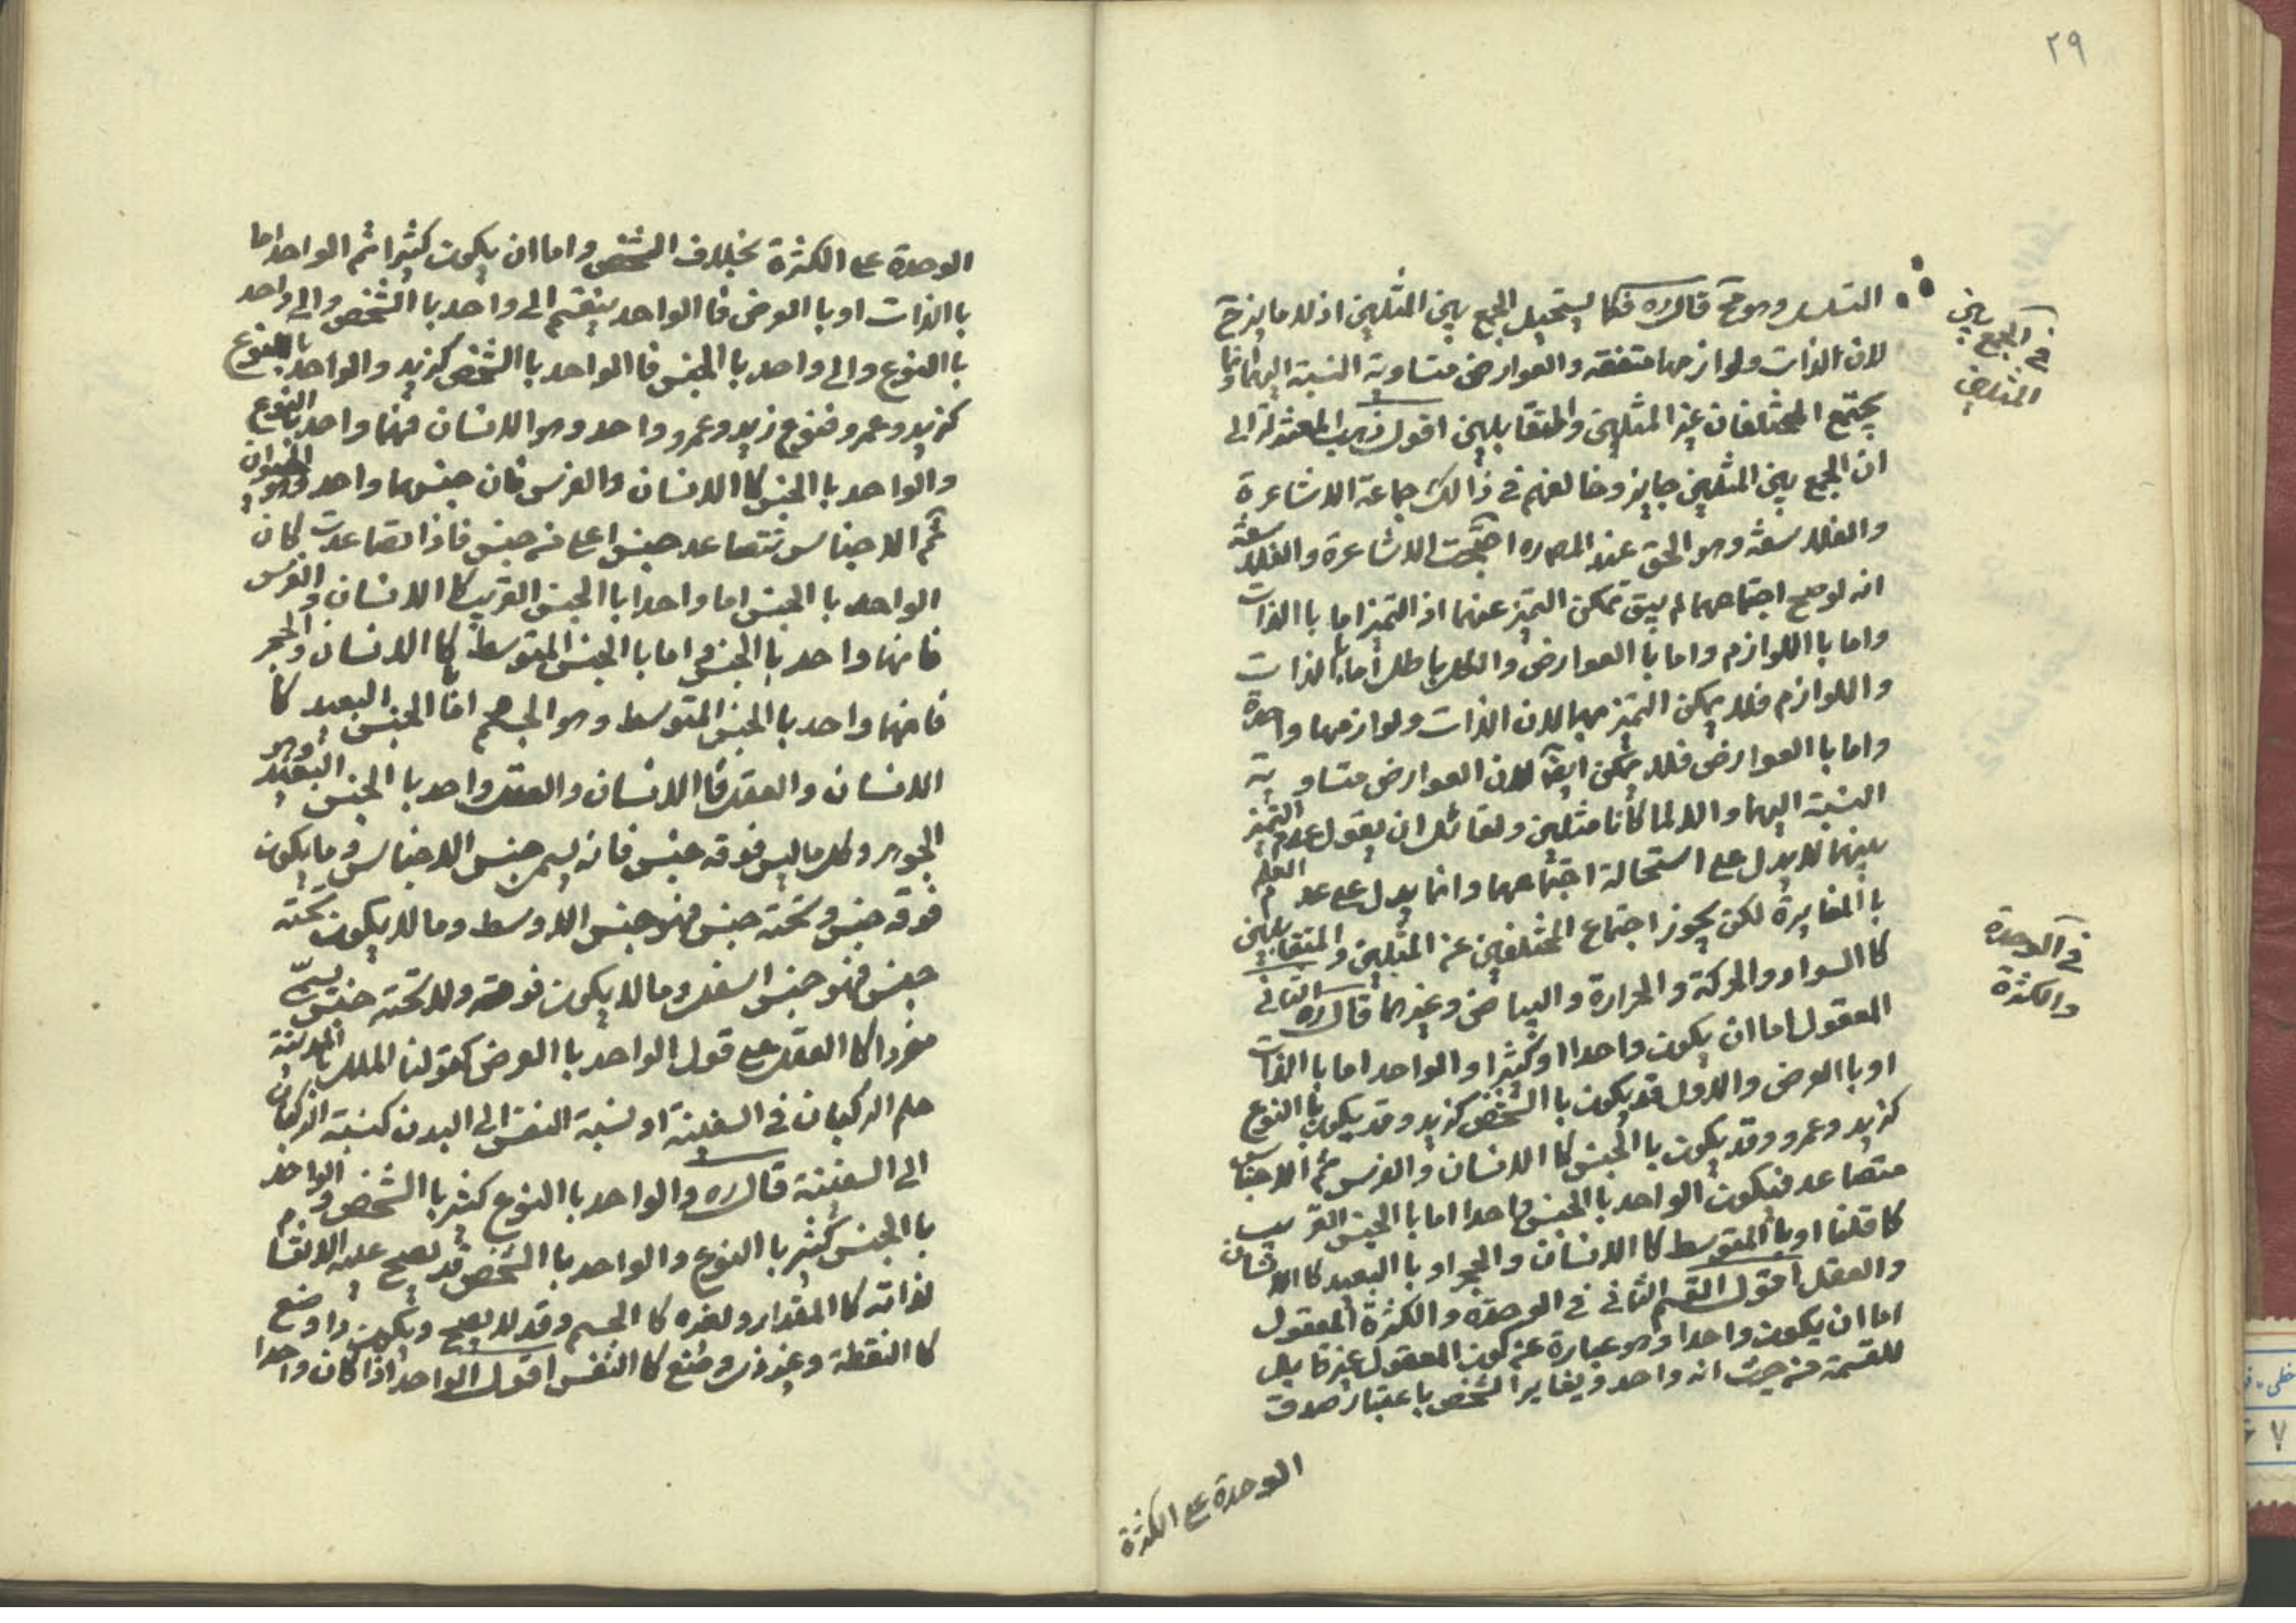 ٢٩
في الجمع بين
المثلين
التسلسل وهو مح قال ره فكما يستحيل الجمع بين المثلين اذ لا مايز ح
لان الذات ولوازمها متفقه والعوارض متساوية النسبة اليهما وانما
يجتمع المختلفان غير المثلين والمتقابلين اقول ذهب المعتزلة الى
ان الجمع بين المثلين جايز وخالفهم في ذالك جماعة الاشاعرة
والفلاسفة وهو الحق عند المصره احتجت الاشاعرة والفلاسفة
انه لو صح اجتماعهما لم يبق تمكن التميز عنهما اذ التميز اما باالذات
واما باللوازم واما باالعوارض والكل باطل اما باالذات
واللوازم فلا يمكن التميز بهما لان الذات ولوازمها واحدة
واما باالعوارض فلا يمكن ايضا لان العوارض متساوية
النسبة اليهما والا لما كانا مثلين ولقائل ان يقول عدم التميز
بينهما لا يدل على استحالة اجتماعهما وانما يدل على عدم العلم
باالمغايرة لكن يجوز اجتماع المختلفين غير المثلين والمتقابلين
كاالسواد والحركة والحرارة والبياض وغيرهما قال ره الثاني
في الوحدة
والكثرة
المعقول اما ان يكون واحدا او كثيرا والواحد اما باالذات
او باالعرض والاول قد يكون باالشخص كزيد وقد يكون باالنوع
كزيد وعمرو وقد يكون باالجنس كاالانسان والفرس ثم الاجناس
متصاعد فيكون الواحد باالجنس واحدا اما باالجنس القريب
كما قلنا او باالمتوسط كاالانسان والحجر او باالبعيد كاالانسان
والعقل اقول القسم الثاني في الوحدة والكثرة المعقول
اما ان يكون واحدا وهو عبارة عن كون المعقول غير قابل
للقسمة من حيث انه واحد ويغاير الشخص باعتبار صدق
الوحدة على الكثرة
الوحدة على الكثرة بخلاف الشخص واما ان يكون كثيرا ثم الواحد اما
باالذات او باالعرض فاالواحد ينقسم الى واحد باالشخص والى واحد
باالنوع والى واحد باالجنس فاالواحد باالشخص كزيد والواحد باالنوع
كزيد وعمرو فنوع زيد وعمرو واحد وهو الانسان فهما واحد باالنوع
والواحد باالجنس كاالانسان والفرس فان جنسهما واحد وهو الحيوان
ثم الاجناس تتصاعد جنس اعلى من جنس فاذا تصاعدت كان
الواحد باالجنس اما واحدا باالجنس القريب كاالانسان والفرس
فانهما واحد باالجنس واما باالجنس المتوسط كاالانسان والحجر
فانهما واحد باالجنس المتوسط وهو الجسم اما الجنس البعيد كا
الانسان والعقل فاالانسان والعقل واحد باالجنس البعيد وهو
الجوهر وكل ما ليس فوقه جنس فانه يسمى جنس الاجناس وما يكون
فوقه جنس وتحته جنس فهو جنس الاوسط وما لا يكون تحته
جنس فهو جنس اسفل وما لا يكون فوقه ولا تحته جنس يسمى
مفردا كاالعقل على قول الواحد باالعرض كقولنا الملك باالمدينة
حكم الركبان في السفينة او نسبة النفس الى البدن كنسبة الركبان
الى السفينة قال ره والواحد باالنوع كثير باالشخص والواحد
باالجنس كثير باالنوع والواحد باالشخص قد يصح عليه الانقسام
لذاته كاالمقدار ولغيره كاالجسم وقد لا يصح ويكون ذا وضع
كاالنقطة وغير ذي وضع كاالنفس اقول الواحد اذا كان واحدا